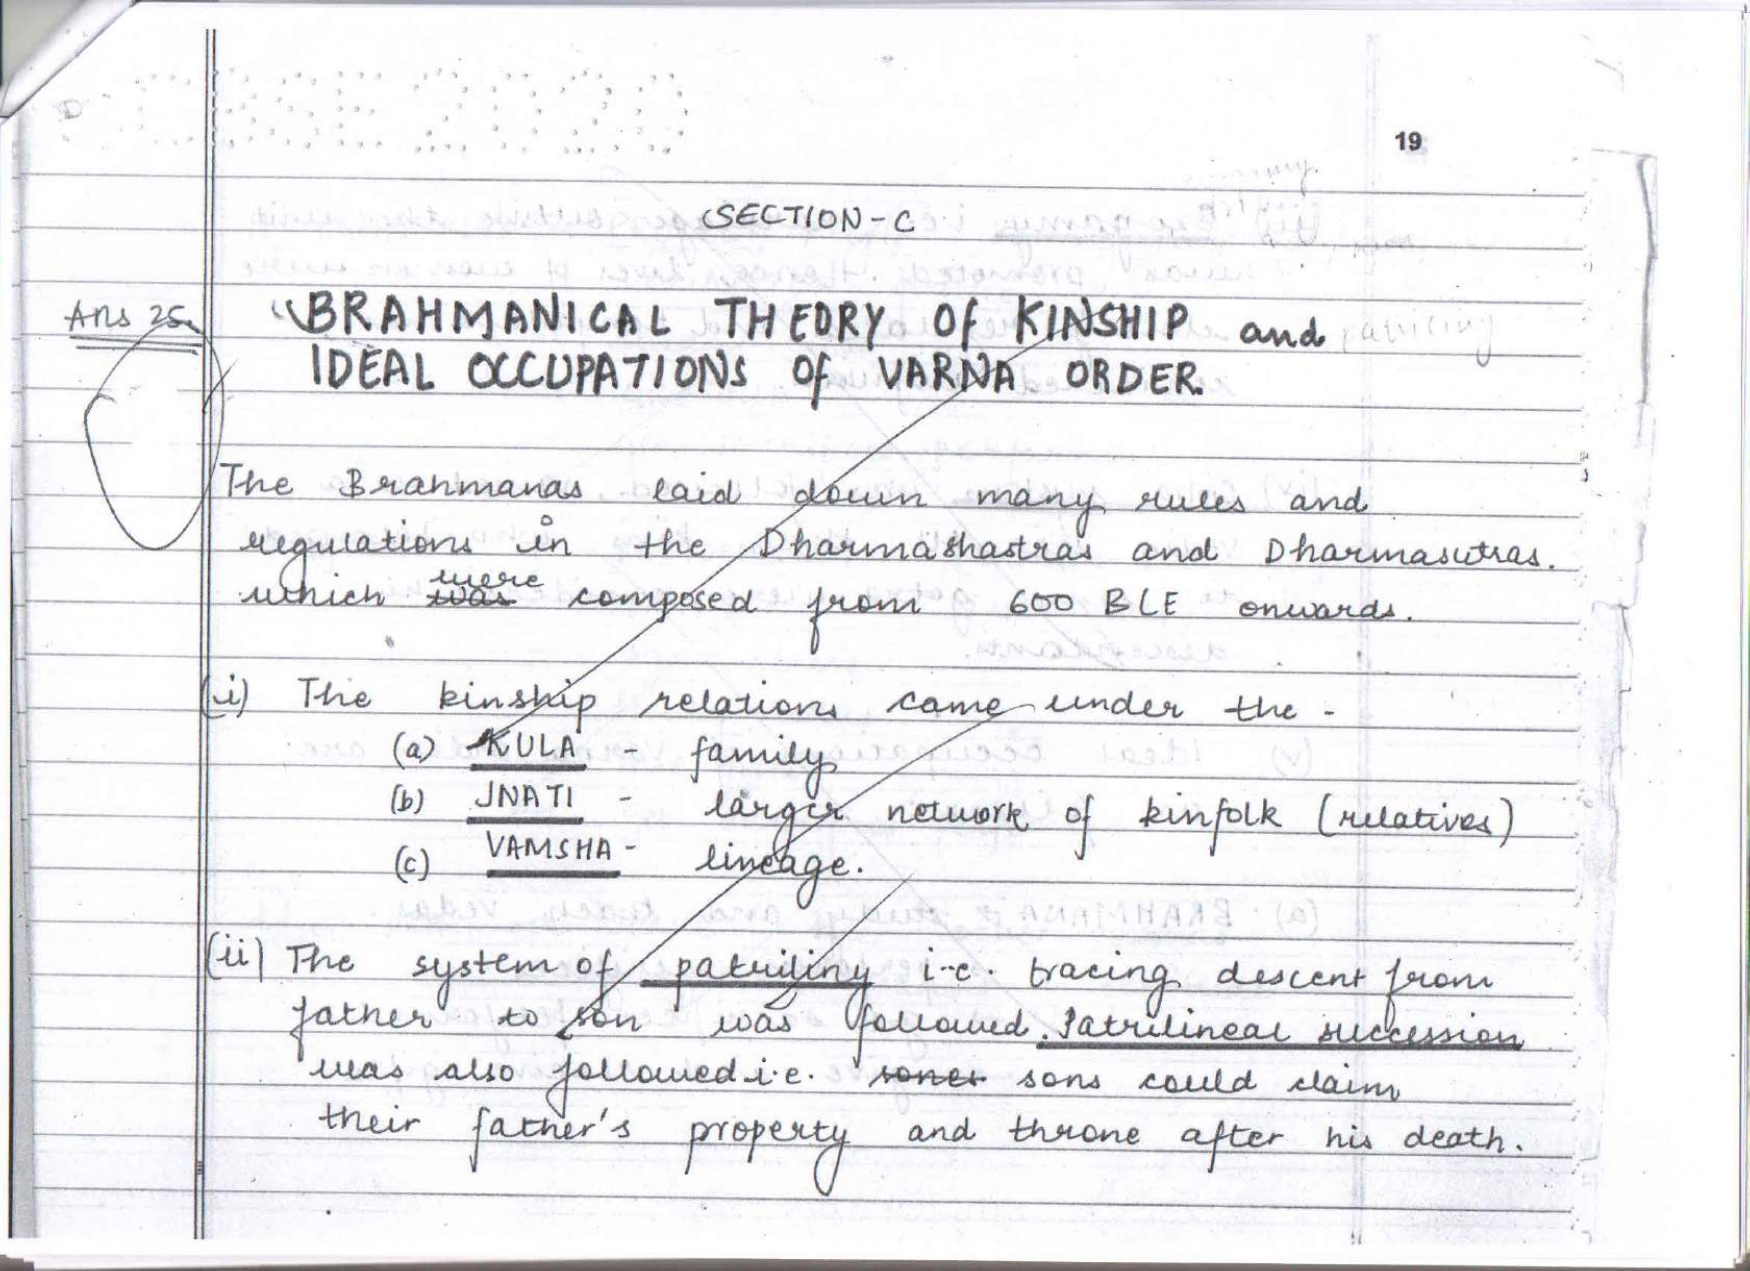 CBSE 2020
19
SECTION-C
Ans 25. "BRAHMANICAL THEORY Of KINSHIP and
IDEAL OCCUPATIONS Of VARNA ORDER.
The Brahmanas laid down many rules and
regulations in the Dharmashastras and Dharmasutras.
which ~~was~~ were composed from 600 BCE onwards.
(i) The kinship relations came under the -
(a) KULA - family
(b) JNATI - larger network of kinfolk (relatives)
(c) VAMSHA - lineage.
(ii) The system of patriliny i.e. tracing descent from
father to son was followed. Patrilineal succession
was also followed i.e. ~~sones~~ sons could claim
their father's property and throne after his death.